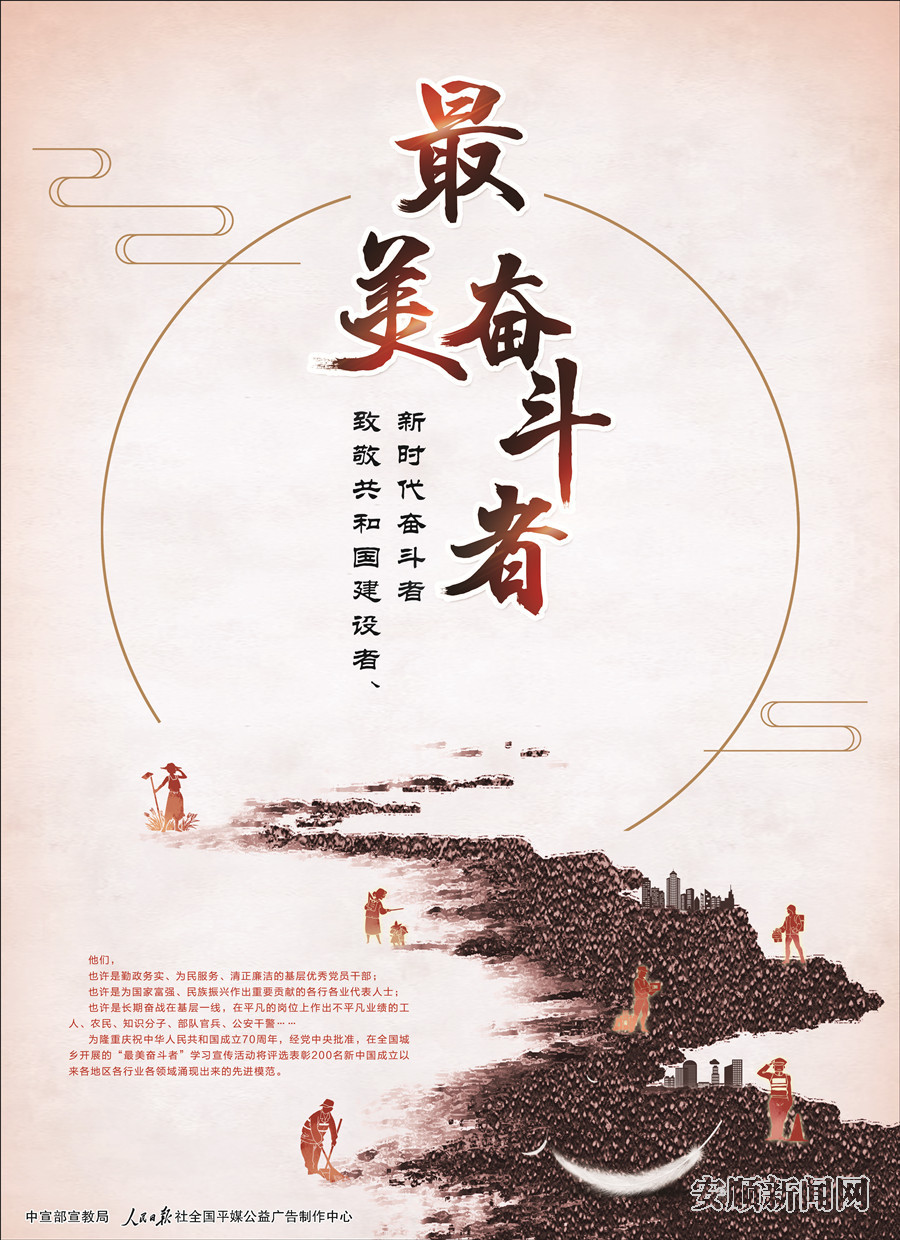 最美奋斗者
致敬共和国建设者、
新时代奋斗者
他们，
也许是勤政务实、为民服务、清正廉洁的基层优秀党员干部；
也许是为国家富强、民族振兴作出重要贡献的各行各业代表人士；
也许是长期奋战在基层一线，在平凡的岗位上作出不平凡业绩的工
人、农民、知识分子、部队官兵、公安干警……
为隆重庆祝中华人民共和国成立70周年，经党中央批准，在全国城
乡开展的“最美奋斗者”学习宣传活动将评选表彰200名新中国成立以
来各地区各行业各领域涌现出来的先进模范。
中宣部宣教局 人民日报社全国平媒公益广告制作中心
安顺新闻网